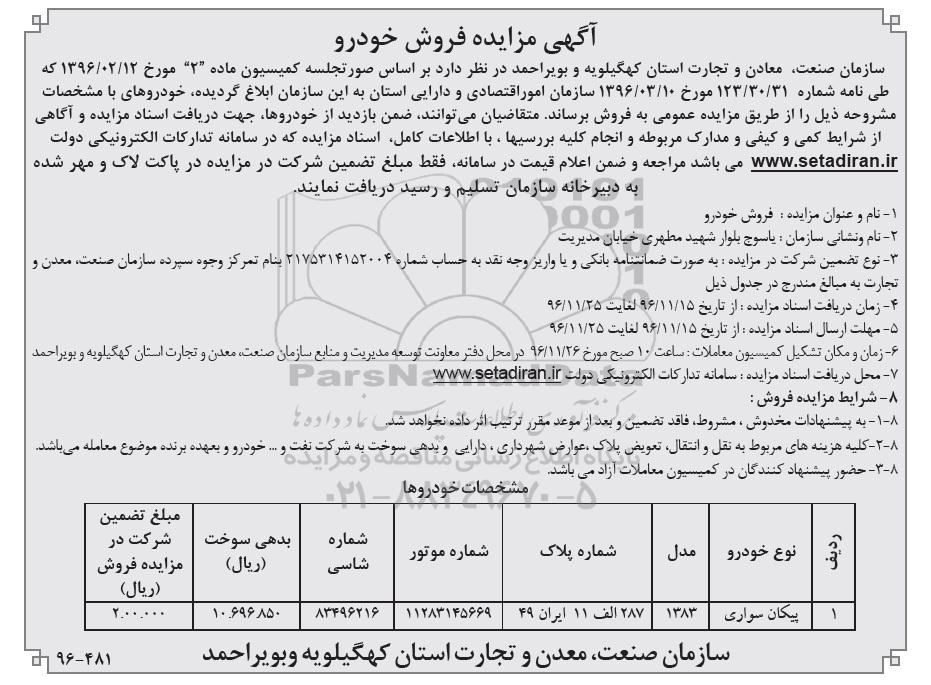 آگهی مزایده فروش خودرو
سازمان صنعت، معادن و تجارت استان کهگیلویه و بویراحمد در نظر دارد بر اساس صورتجلسه کمیسیون ماده "۲" مورخ ۱۳۹۶/۰۲/۱۲ که
طی نامه شماره ۱۲۳/۳۰/۳۱ مورخ ۱۳۹۶/۰۳/۱۰ سازمان اموراقتصادی و دارایی استان به این سازمان ابلاغ گردیده، خودروهای با مشخصات
مشروحه ذیل را از طریق مزایده عمومی به فروش برساند. متقاضیان می‌توانند، ضمن بازدید از خودروها، جهت دریافت اسناد مزایده و آگاهی
از شرایط کمی و کیفی و مدارک مربوطه و انجام کلیه بررسیها ، با اطلاعات کامل، اسناد مزایده که در سامانه تدارکات الکترونیکی دولت
www.setadiran.ir می باشد مراجعه و ضمن اعلام قیمت در سامانه، فقط مبلغ تضمین شرکت در مزایده در پاکت لاک و مهر شده
به دبیرخانه سازمان تسلیم و رسید دریافت نمایند.
۱- نام و عنوان مزایده : فروش خودرو
۲- نام ونشانی سازمان : یاسوج بلوار شهید مطهری خیابان مدیریت
۳- نوع تضمین شرکت در مزایده : به صورت ضمانتنامه بانکی و یا واریز وجه نقد به حساب شماره ۲۱۷۵۳۱۴۱۵۲۰۰۴ بنام تمرکز وجوه سپرده سازمان صنعت، معدن و
تجارت به مبالغ مندرج در جدول ذیل
۴- زمان دریافت اسناد مزایده : از تاریخ ۹۶/۱۱/۱۵ لغایت ۹۶/۱۱/۲۵
۵- مهلت ارسال اسناد مزایده : از تاریخ ۹۶/۱۱/۱۵ لغایت ۹۶/۱۱/۲۵
۶- زمان و مکان تشکیل کمیسیون معاملات : ساعت ۱۰ صبح مورخ ۹۶/۱۱/۲۶ در محل دفتر معاونت توسعه مدیریت و منابع سازمان صنعت، معدن و تجارت استان کهگیلویه و بویراحمد
۷- محل دریافت اسناد مزایده : سامانه تدارکات الکترونیکی دولت www.setadiran.ir
۸- شرایط مزایده فروش :
۸-۱- به پیشنهادات مخدوش ، مشروط، فاقد تضمین و بعد از موعد مقرر ترتیب اثر داده نخواهد شد.
۸-۲-کلیه هزینه های مربوط به نقل و انتقال، تعویض پلاک ،عوارض شهرداری ، دارایی و بدهی سوخت به شرکت نفت و ... خودرو و بعهده برنده موضوع معامله می‌باشد.
۸-۳- حضور پیشنهاد کنندگان در کمیسیون معاملات آزاد می باشد.
مشخصات خودروها
ردیف نوع خودرو مدل شماره پلاک شماره موتور شماره شاسی بدهی سوخت (ریال) مبلغ تضمین شرکت در مزایده فروش (ریال)
۱ پیکان سواری ۱۳۸۳ ۲۸۷ الف ۱۱ ایران ۴۹ ۱۱۲۸۳۱۴۵۶۶۹ ۸۳۴۹۶۲۱۶ ۱۰.۶۹۶.۸۵۰ ۲.۰۰.۰۰۰
سازمان صنعت، معدن و تجارت استان کهگیلویه وبویراحمد
۹۶-۴۸۱
ParsNamadData
پایگاه اطلاع رسانی مناقصه و مزایده
۰۲۱-۸۸۳۴۹۶۷۰-۵